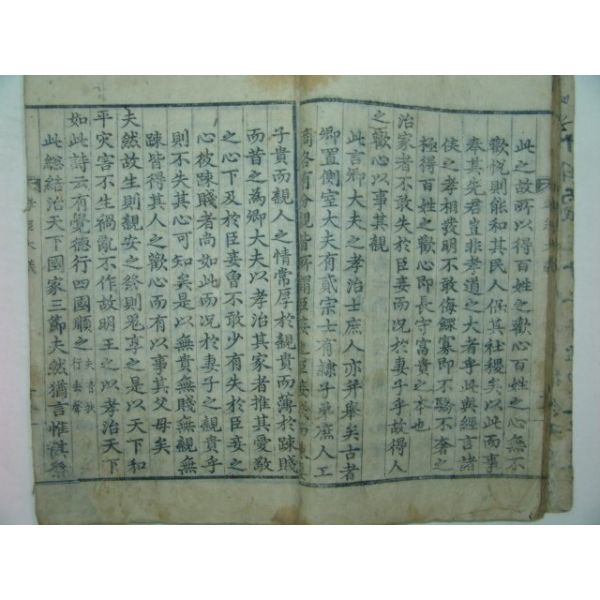 此之故所以得百姓之歡心百姓之心無不
歡悅則能和其民人保其社稷矣以此而事
奉其先君豈非孝道之大者乎此與經言諸
侯之孝相發明不敢侮鰥寡即不驕不奢之
極得百姓之歡心即長守富貴之本也
治家者不敢失於臣妾而況於妻子乎故得人
之歡心以事其親
此言卿大夫之孝治士庶人亦并舉矣古者
卿置側室大夫有貳宗士有隷子弟庶人工
商各有分親皆所謂臣妾也臣妾
子貴而親人之情常厚於親貴而薄於踈賤
而昔之為卿大夫以孝治其家者推其愛敬
之心下及於臣妾曾不敢少有失於臣妾之
心彼踈賤者尚如此而况於妻子之親貴乎
則不失其心可知矣是以無貴無賤無親無
踈皆得其人之歡心而有以事其父母矣
夫然故生則親安之祭則鬼享之是以天下和
平灾害不生禍亂不作故明王之以孝治天下
如此詩云有覺德行四國順之 夫音扶 行去聲
此總結治天下國家三節夫然猶言惟其然
孝經大義